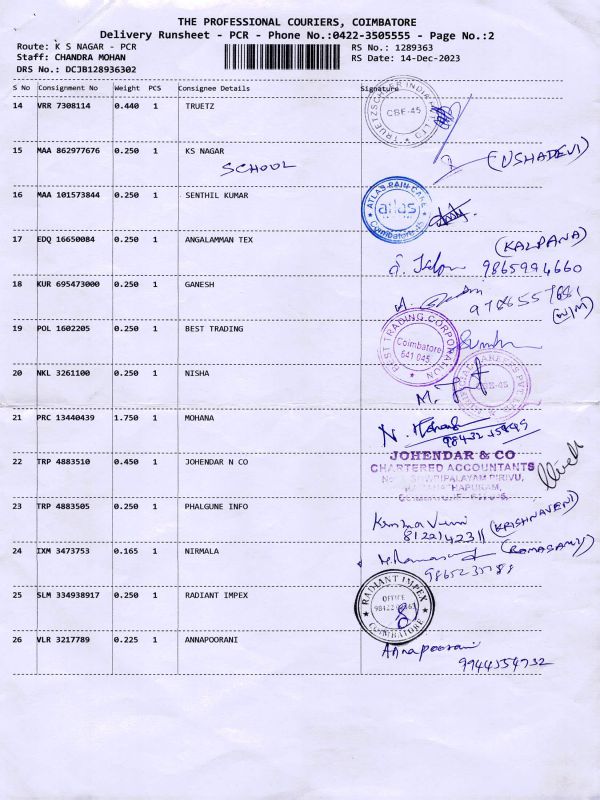 THE PROFESSIONAL COURIERS, COIMBATORE
Delivery Runsheet - PCR - Phone No.:0422-3505555 - Page No.:2
Route: K S NAGAR - PCR
RS No.: 1289363
Staff: CHANDRA MOHAN
RS Date: 14-Dec-2023
DRS No.: DCJB128936302
S No Consignment No Weight PCS Consignee Details Signature
14 VRR 7308114 0.440 1 TRUETZ
CBE-45
15 MAA 862977676 0.250 1 KS NAGAR
SCHOOL
(USHADEVI)
16 MAA 101573844 0.250 1 SENTHIL KUMAR
ATLAS PAIN CARE
atlas
Coimbatore-45
17 EDQ 16650084 0.250 1 ANGALAMMAN TEX
(KALPANA)
9865994660
18 KUR 695473000 0.250 1 GANESH
19 POL 1602205 0.250 1 BEST TRADING
BEST TRADING CORPORATION
Coimbatore
641 045
20 NKL 3261100 0.250 1 NISHA
CBE-45
21 PRC 13440439 1.750 1 MOHANA
N. Mohana
22 TRP 4883510 0.450 1 JOHENDAR N CO
JOHENDAR & CO
CHARTERED ACCOUNTANTS
23 TRP 4883505 0.250 1 PHALGUNE INFO
(KRISHNAVENI)
8122142311
24 IXM 3473753 0.165 1 NIRMALA
(RAMASAMY)
25 SLM 334938917 0.250 1 RADIANT IMPEX
RADIANT IMPEX
OFFICE
COIMBATORE
26 VLR 3217789 0.225 1 ANNAPOORANI
Annapoorani
9944354732